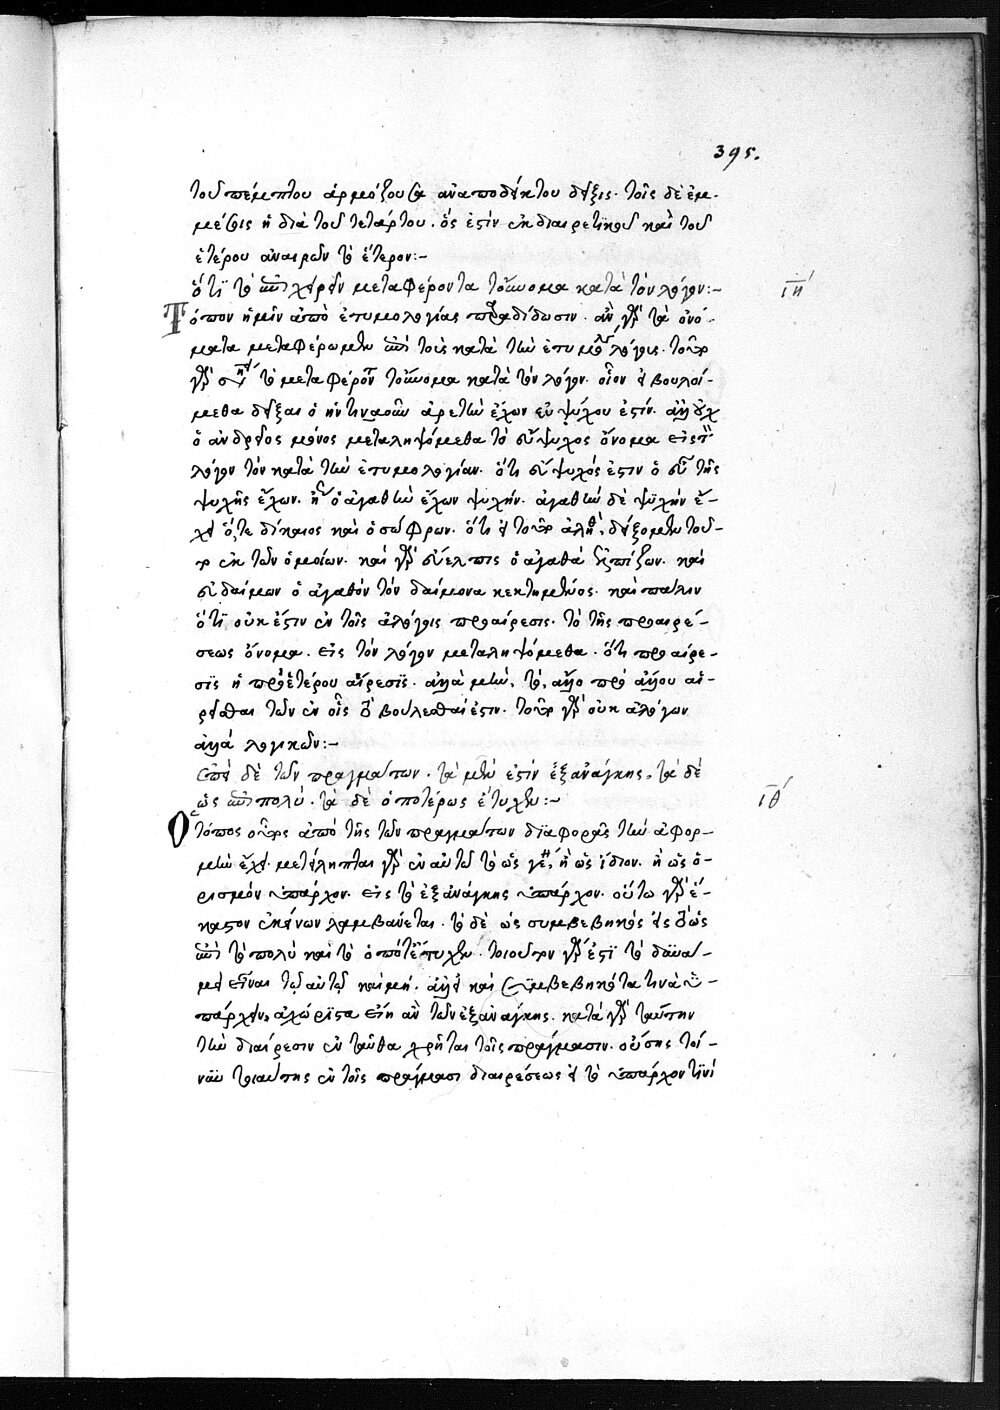 395.
τοῦ πέμπτου ἁρμόζουσα ἀναποδείκτου δεῖξις· τοῖς δὲ ἐμ-
μέσοις ἡ διὰ τοῦ τετάρτου· ὅς ἐστιν ἐκ διαιρετικοῦ καὶ τοῦ
ἑτέρου ἀναιρῶν τὸ ἕτερον:-
ὅτι τὸ ἐπιχειρεῖν μεταφέροντα τοὔνομα κατὰ τὸν λόγον:- ιη
Τόπον ἡμῖν ἀπὸ ἐτυμολογίας παραδίδωσιν· ἂν γὰρ τὰ ὀνό-
ματα μεταφέρωμεν ἐπὶ τοὺς κατὰ τὴν ἐτυμολογίαν λόγους· τοῦτο
γὰρ τὸ μεταφέροντα τοὔνομα κατὰ τὸν λόγον· οἷον εἰ βουλοί-
μεθα δεῖξαι ὁ ἡντιναοῦν ἀρετὴν ἔχων εὔψυχός ἐστιν· ἀλλ' οὐχ
ὁ ἀνδρεῖος μόνος μεταληψόμεθα τὸ εὔψυχος ὄνομα εἰς τὸν
λόγον τὸν κατὰ τὴν ἐτυμολογίαν· ὅτι εὔψυχός ἐστιν ὁ εὖ τῆς
ψυχῆς ἔχων· ἢ ὁ ἀγαθὴν ἔχων ψυχήν· ἀγαθὴν δὲ ψυχὴν ἔ-
χει ὅ τε δίκαιος καὶ ὁ σώφρων· ὅτι εἰ τοῦτο ἀληθὲς, δείξομεν τοῦ-
το ἐκ τῶν ὁμοίων· καὶ γὰρ εὔελπις ὁ ἀγαθὰ ἐλπίζων· καὶ
εὐδαίμων ὁ ἀγαθὸν τὸν δαίμονα κεκτημένος· καὶ πάλιν
ὅτι οὐκ ἔστιν ἐν τοῖς ἀλόγοις προαίρεσις· τὸ τῆς προαιρέ-
σεως ὄνομα· εἰς τὸν λόγον μεταληψόμεθα· ὅτι προαίρε-
σις ἡ πρὸ ἑτέρου αἵρεσις· ἀλλὰ μὴν, τὸ, ἄλλο πρὸ ἄλλου αἱ-
ρεῖσθαι τῶν ἐν οἷς τὸ βουλεύεσθαί ἐστιν· τοῦτο γὰρ οὐκ ἀλόγων
ἀλλὰ λογικῶν:-
Ἐπεὶ δὲ τῶν πραγμάτων· τὰ μὲν ἐστὶν ἐξανάγκης· τὰ δὲ
ὡς ἐπιπολύ· τὰ δὲ ὁποτέρως ἔτυχεν:- ιθ
Ὁ τόπος οὗτος ἀπὸ τῆς τῶν πραγμάτων διαφορᾶς τὴν ἀφορ-
μὴν ἔχει· μετείληπται γὰρ ἐν αὐτῷ τὸ ὡς γένος, ἢ ὡς ἴδιον· ἢ ὡς ὁ-
ρισμὸν ὑπάρχον· εἰς τὸ ἐξανάγκης ὑπάρχον· οὕτω γὰρ ἕ-
καστον ἐκείνων λαμβάνεται· τὸ δὲ ὡς συμβεβηκὸς εἰς τὸ ὡς
ἐπὶ τὸ πολὺ καὶ τὸ ὁπότερ' ἔτυχεν· τοιοῦτον γὰρ ἐστὶ τὸ δύνα-
μει εἶναι τῷ αὐτῷ καὶ μή· ἀλλ' εἰ καὶ συμβεβηκότα τινὰ ὑ-
πάρχειν ἀχώριστα εἴη ἂν τῶν ἐξανάγκης· κατὰ γὰρ ταύτην
τὴν διαίρεσιν ἐνταῦθα χρῆται τοῖς πράγμασιν· οὔσης τοί-
νυν τοιαύτης ἐν τοῖς πράγμασι διαιρέσεως εἰ τὸ ὑπάρχον τινὶ